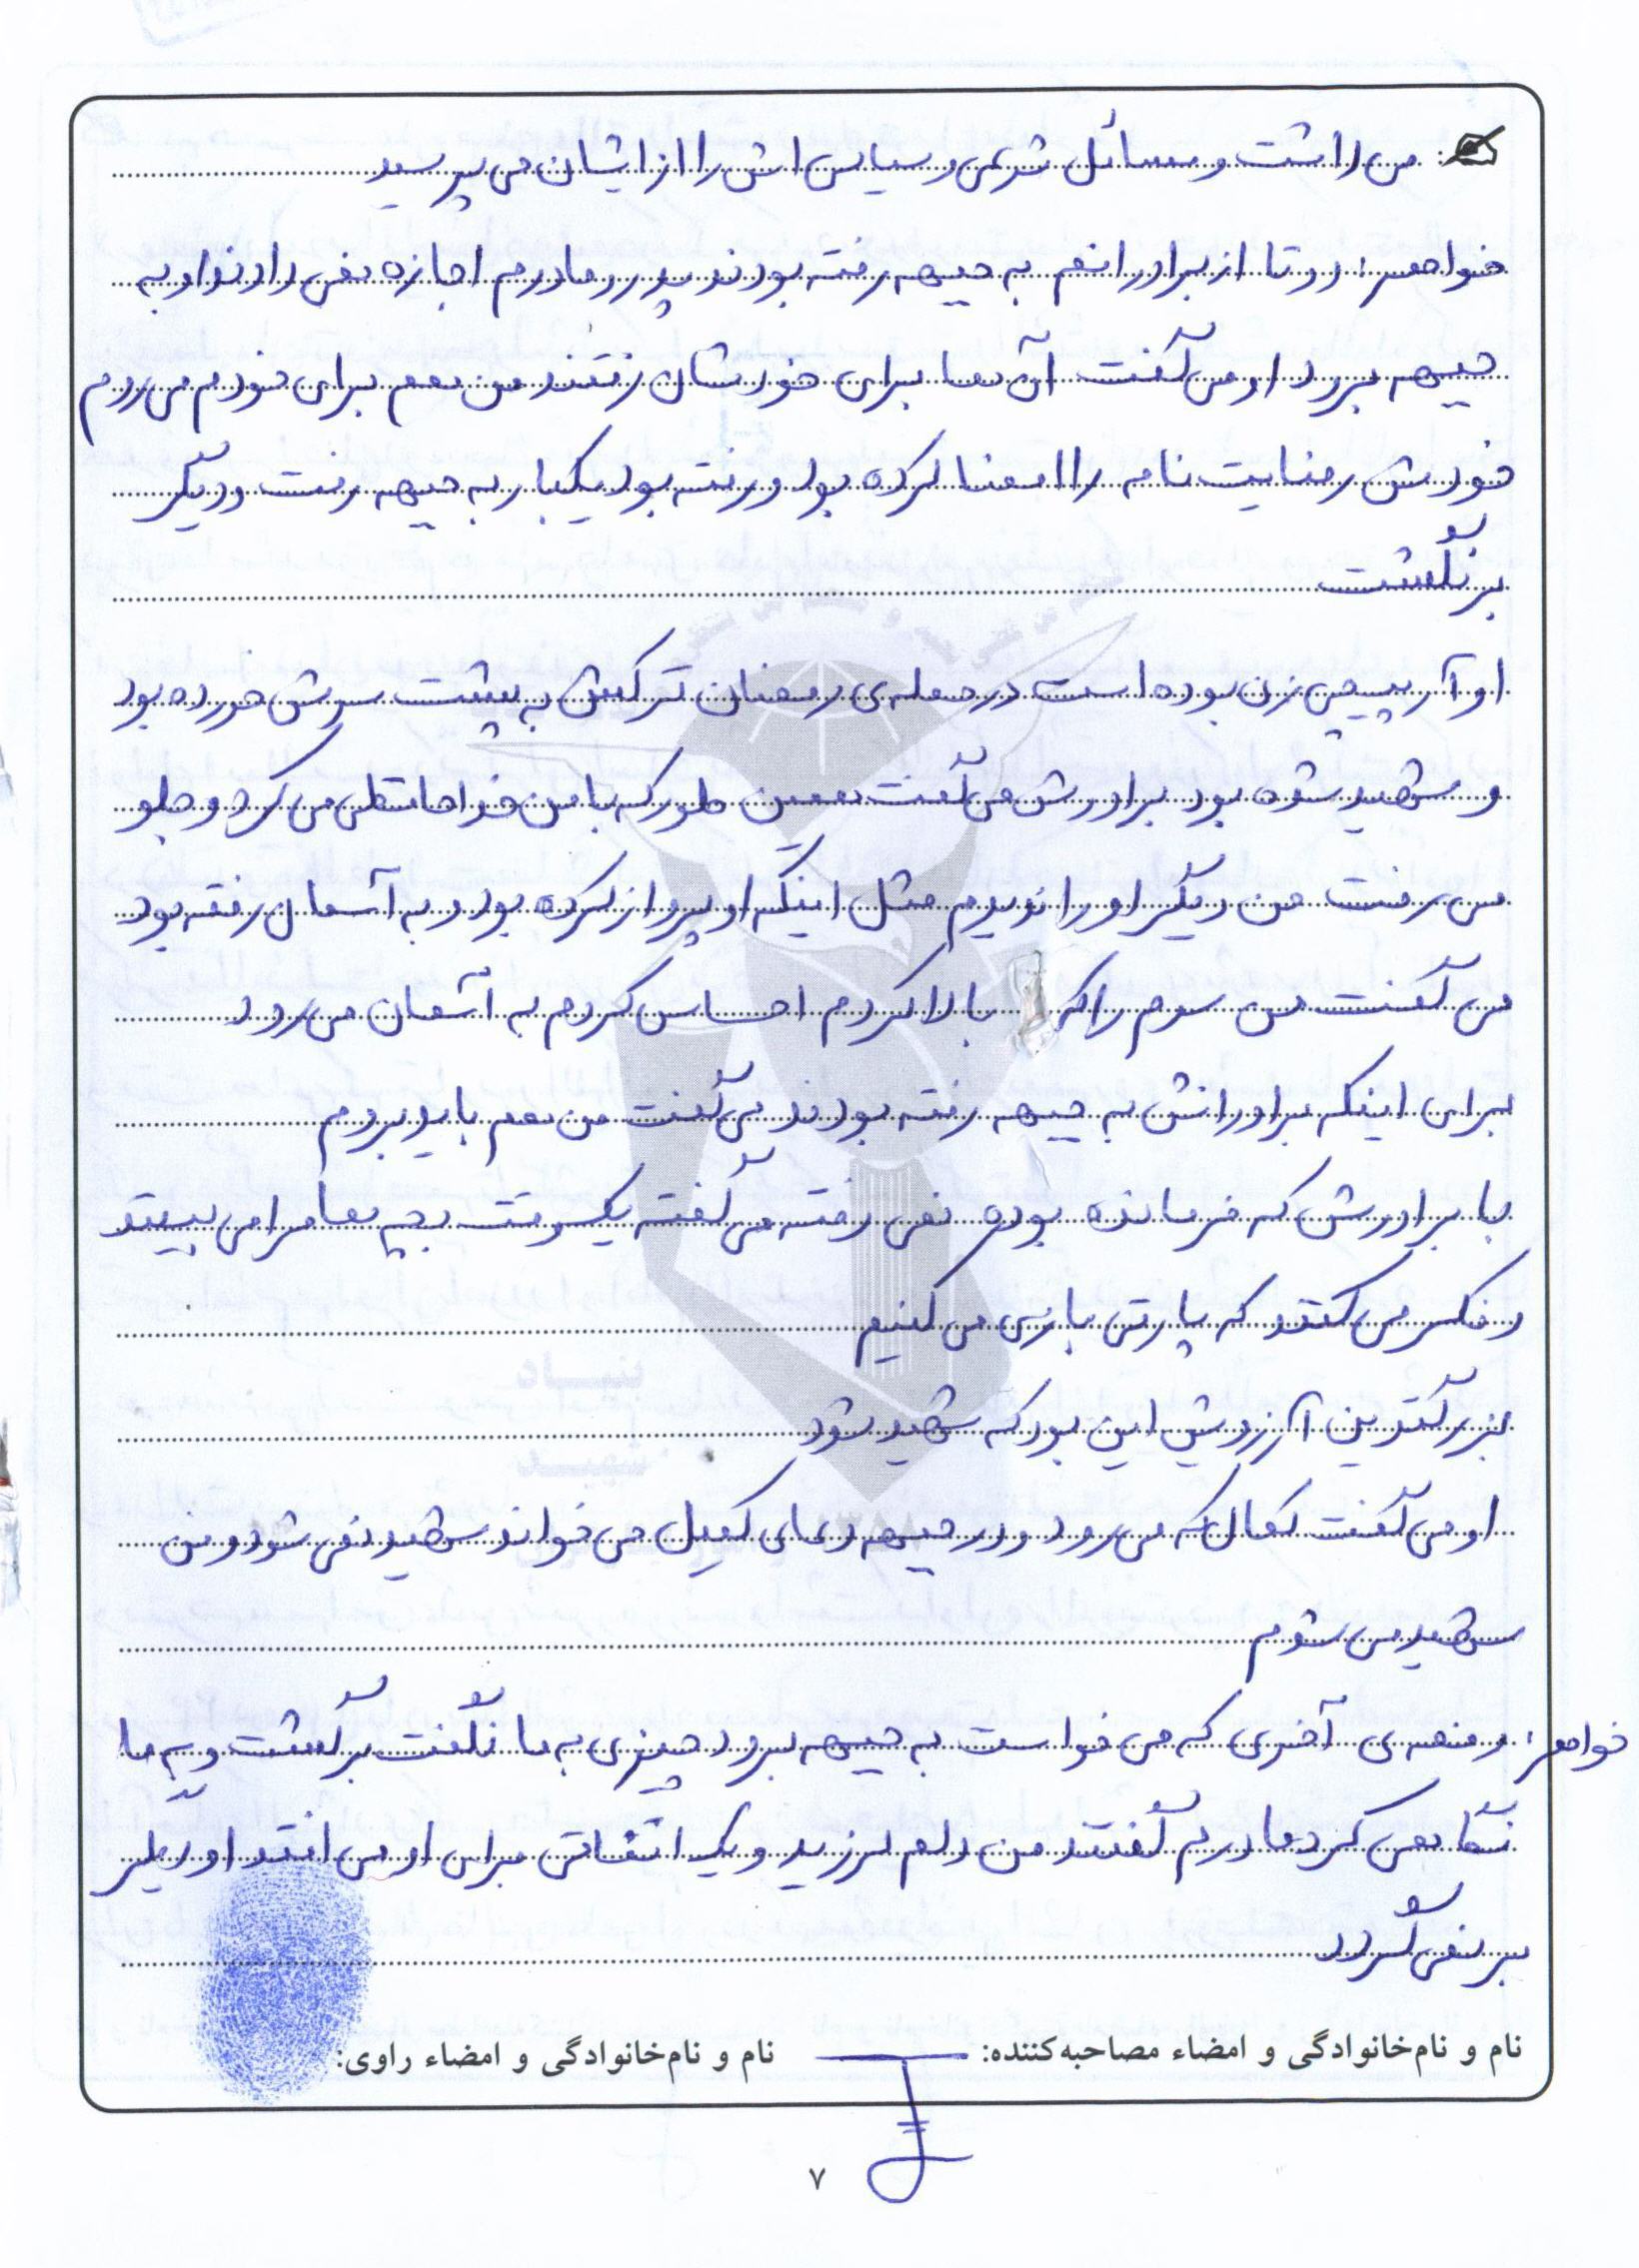 می داشت و مسائل شرعی و سیاسی اش را از ایشان می پرسید
خواهر: دو تا از برادرانم به جبهه رفته بودند پدر و مادرم اجازه نمی دادند او به
جبهه برود او می گفت آن ها برای خودشان رفتند من هم برای خودم می روم
خودش رضایت نامه را امضا کرده بود و رفته بود یکبار به جبهه رفت و دیگر
برنگشت
او آرپیچی زن بوده است در حمله ی رمضان ترکش به پشت سرش خورده بود
و شهید شده بود برادرش می گفت همین طور که با من خداحافظی می کرد و جلو
می رفت من دیگر او را ندیدم مثل اینکه او پرواز کرده بود و به آسمان رفته بود
می گفت من سرم را که بالا کردم احساس کردم به آسمان می رود
برای اینکه برادرانش به جبهه رفته بودند می گفت من هم باید بروم
با برادرش که فرمانده بوده نمی رفته می گفته یکوقت بچه ها مرا می بینند
و فکر می کنند که پارتی بازی می کنیم
بزرگترین آرزویش این بود که شهید شود
او می گفت کمال که می رود و در جبهه دعای کمیل می خواند شهید نمی شود و من
شهید می شوم
خواهر: دفعه ی آخری که می خواست به جبهه برود چیزی به ما نگفت برگشت و به ما
نگاهی کرد مادرم گفتند من دلم لرزید و یک اتفاقی برای او می افتد او دیگر
بر نمی گردد
نام و نام‌خانوادگی و امضاء مصاحبه‌کننده: نام و نام‌خانوادگی و امضاء راوی:
۷